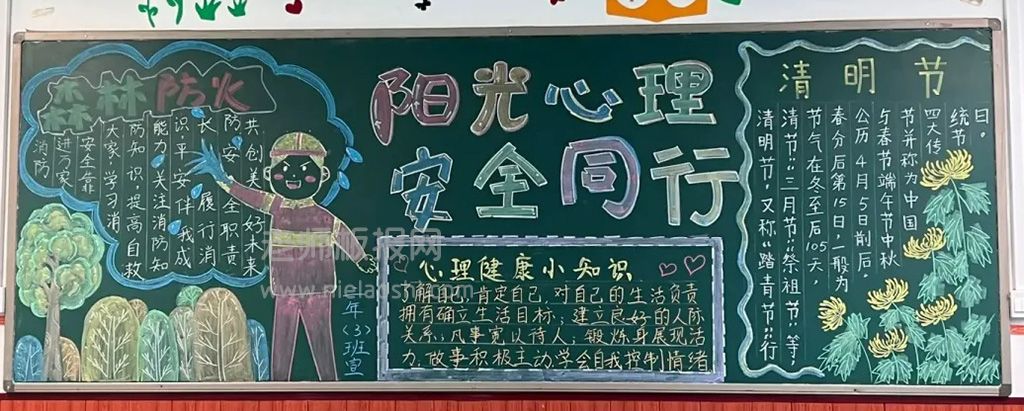 森林防火
消防
进万家
安全靠
大家,学习消
防知识,提高自救
能力关注消防知
识平安伴我成
长,履行消
防安全职责
共创美好未来
年(3)班宣
阳光心理
安全同行
心理健康小知识
了解自己,肯定自己,对自己的生活负责
拥有确立生活目标;建立良好的人际
关系,凡事宽以待人;锻炼身展现活
力,做事积极主动,学会自我控制情绪
清明节
清明节,又称“踏青节”“行
清节”“三月节”“祭祖节”等,
节气在冬至后105天,
春分后第15日,一般为
公历4月5日前后。
与春节端午节中秋
节并称为中国
四大传
统节
日。
老师板报网